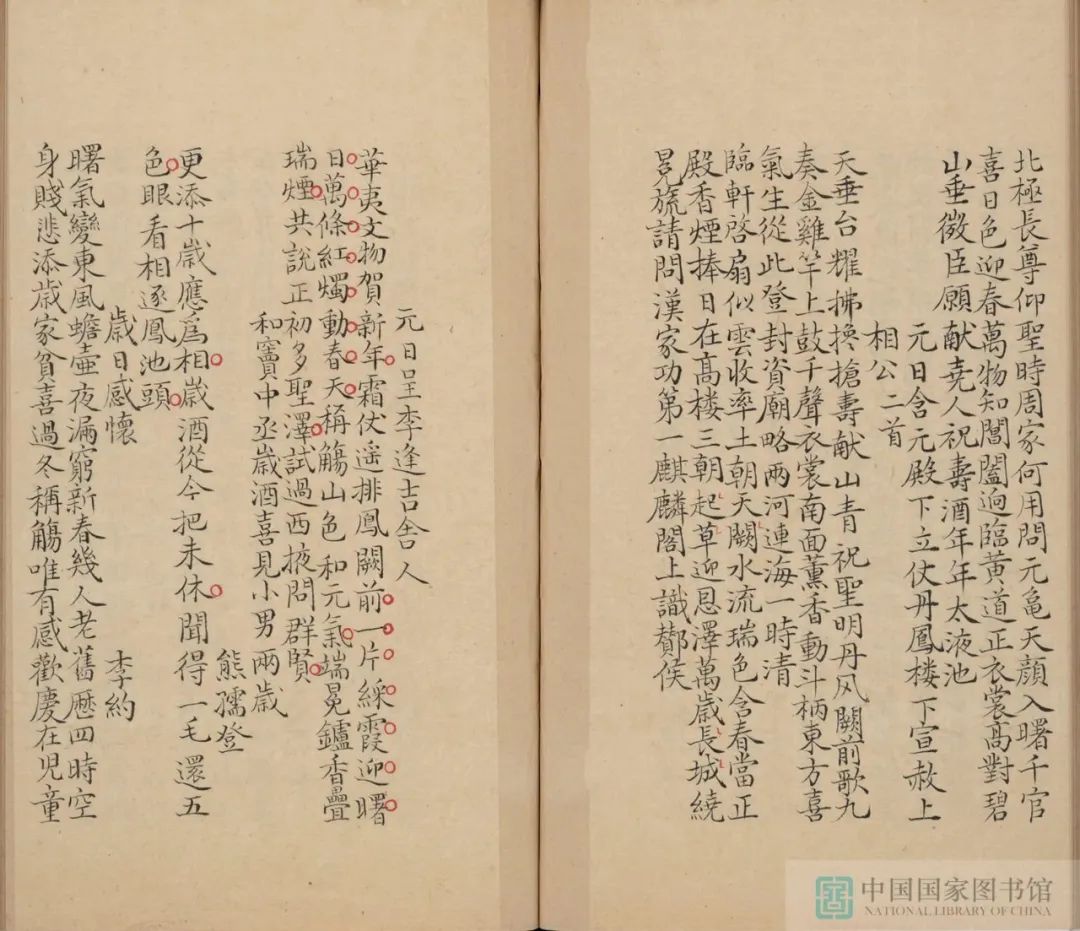 北極長尊仰聖時周家何用問元龜天顏入曙千官
喜日色迎春萬物知閶闔逈臨黃道正衣裳高對碧
山垂微臣願献尭人祝壽酒年年太液池
元日含元殿下立仗丹鳳楼下宣赦上
相公二首
天垂台耀拂攙搶壽献山青祝聖明丹风闕前歌九
奏金雞竿上鼓千聲衣裳南面薰香動斗柄東方喜
氣生從此登封資廟略兩河連海一時清
臨軒啓扇似雲收率土朝天闕水流瑞色含春當正
殿香煙捧日在高楼三朝起草迎恩澤萬歳長城繞
冕旒請問漢家功第一麒麟閣上識酇侯
元日呈李逢吉舍人
華夷文物賀新年霜仗遥排鳳闕前一片綵霞迎曙
日萬條紅燭動春天稱觴山色和元氣端冕鑪香疊
瑞煙共說正初多聖澤試過西掖問群賢
和竇中丞歳酒喜見小男兩歳
熊孺登
更添十歳應爲相歳酒從今把未休聞得一毛還五
色眼看相逐鳳池頭
歳日感懷
李約
曙氣變東風蟾壷夜漏窮新春幾人老舊歴四時空
身賤悲添歳家貧喜過冬稱觴唯有感歡慶在児童
中国国家图书馆
NATIONAL LIBRARY OF CHINA